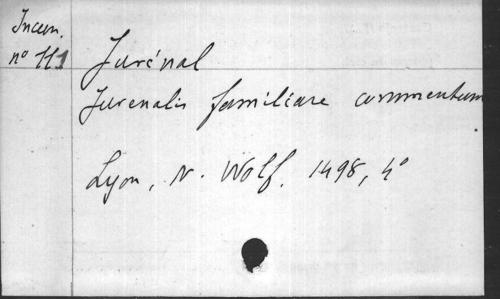 Incun.
nº 111
Juvénal
Juvenalis familiare commentum
Lyon, N. Wolf. 1498, 4º